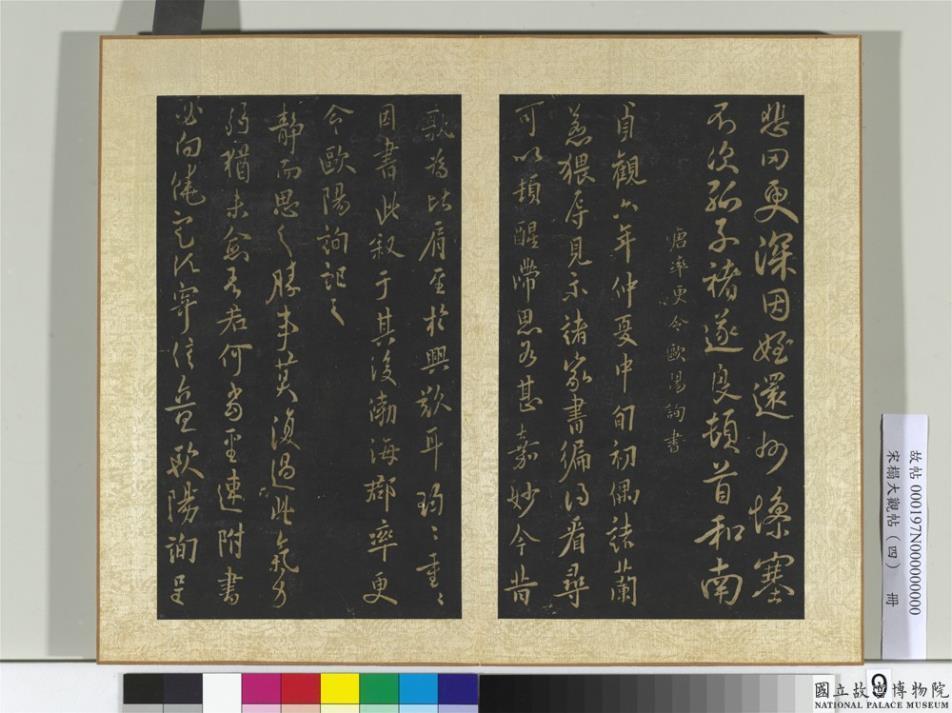 悲田更深因姪還州慘塞
不次孤子褚遂良頓首和南
唐率更令歐陽詢書
貞觀六年仲夏中旬初偶諸蘭
若猥辱見示諸家書徧得看尋
可以頓醒滯思為甚嘉妙今昔
孰為比肩至於興歎耳
因書此敘于其後渤海郡率更
令歐陽詢記之
靜而思之勝事莫復過此氣力
弱猶未愈吾君何當至速附書
必向饒定須寄信歐陽詢呈
故帖 000197N000000000
宋榻大觀帖(四) 冊
9
國立故宮博物院
NATIONAL PALACE MUSEUM